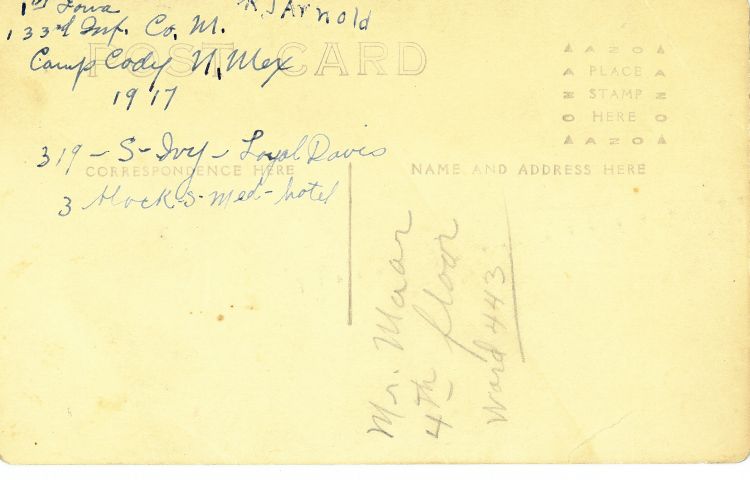 1st Iowa
R J Arnold
133rd Inf. Co. M.
POST CARD
Camp Cody N. Mex
1917
319 - S - Ivy - Loyal Davis
CORRESPONDENCE HERE
3 block - S - Med - hotel
NAME AND ADDRESS HERE
AZO
PLACE
STAMP
HERE
AZO
Mr.
4th floor
Ward 443